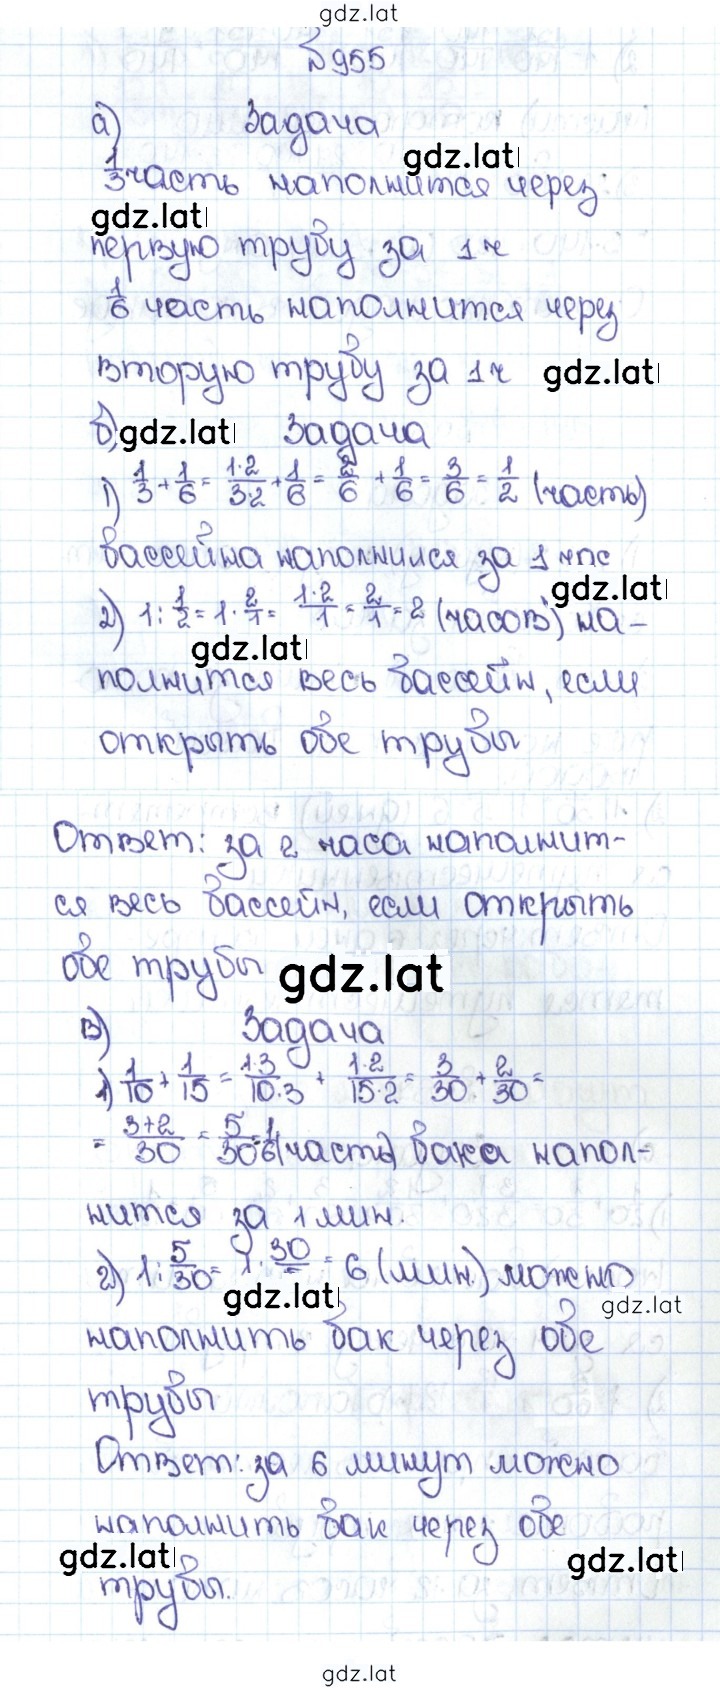 gdz.lat
№955
а) Задача
gdz.lat
1/3 часть наполнится через:
gdz.lat
первую трубу за 1 ч
1/6 часть наполнится через
вторую трубу за 1 ч gdz.lat
б) gdz.lat Задача
1) 1/3 + 1/6 = 1·2/3·2 + 1/6 = 2/6 + 1/6 = 3/6 = 1/2 (часть)
бассейна наполнился за 1 час
gdz.lat
2) 1 : 1/2 = 1 · 2/1 = 1·2/1 = 2/1 = 2 (часов) на-
gdz.lat
полнится весь бассейн, если
открыть обе трубы
Ответ: за 2 часа наполнит-
ся весь бассейн, если открыть
обе трубы gdz.lat
в) Задача
1) 1/10 + 1/15 = 1·3/10·3 + 1·2/15·2 = 3/30 + 2/30 =
= 3+2/30 = 5/30 = 1/6 (часть) бака напол-
нится за 1 мин.
2) 1 : 5/30 = 1 · 30/ = 6 (мин.) можно
gdz.lat
gdz.lat
наполнить бак через обе
трубы
Ответ: за 6 минут можно
наполнить бак через обе
gdz.lat gdz.lat
трубы.
gdz.lat